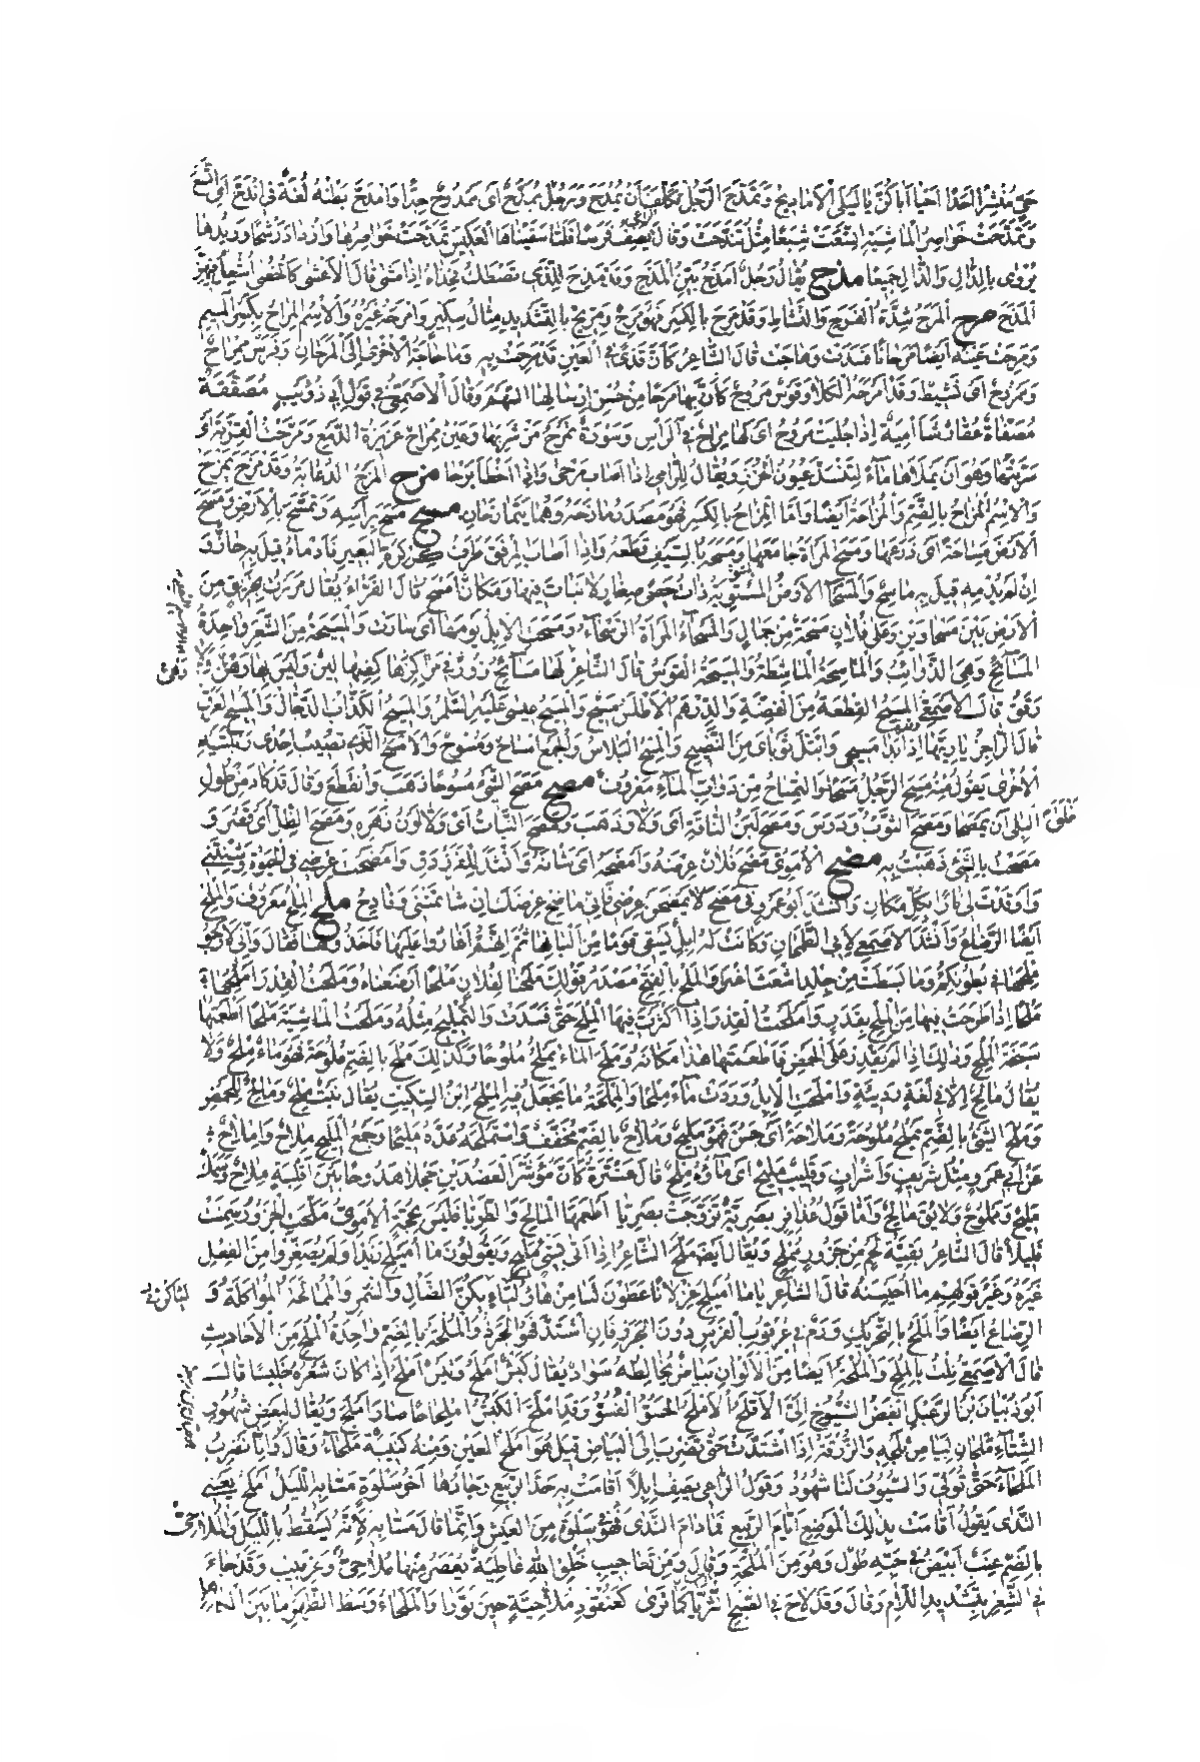 حَيٌّ مُنْشِرًا أَحَدًا أَحْيَا أَبَاكُنَّ يَا لَيْلَى الْأَمَادِيحُ وَتَمَدَّحَ الرَّجُلُ تَكَلَّفَ أَنْ يُمْدَحَ وَرَجُلٌ مُمَدَّحٌ أَي مَمْدُوحٌ جِدًّا وَامْدَحَّ بَطْنُهُ لُغَةٌ فِي انْدَحَّ أَي اتَّسَعَ
وَتَمَدَّحَتْ خَوَاصِرُ الْمَاشِيَةِ اتَّسَعَتْ شِبَعًا مِثْلُ تَنَدَّحَتْ وَقَالَ الراعي يَصِفُ فَرَسًا فَلَمَّا سَقَيْنَاهَا الْعَكِيسَ تَمَدَّحَتْ خَوَاصِرُهَا وَازْدَادَ رَشْحًا وَرِيدُهَا
يُرْوَى بِالدَّالِ وَالذَّالِ جَمِيعًا مذح يُقَالُ رَجُلٌ أَمْذَحُ بَيِّنُ الْمَذَحِ وَقَدْ مَذِحَ لِلَّذِي تَصْطَكُّ فَخِذَاهُ إِذَا مَشَى قَالَ الْأَعْشَى
الْمَذَحَ مرح الْمَرَحُ شِدَّةُ الْفَرَحِ وَالنَّشَاطِ وَقَدْ مَرِحَ بِالْكَسْرِ فَهُوَ مَرِحٌ وَمِرِّيحٌ بِالتَّشْدِيدِ مِثَالُ سِكِّيرٍ وَأَمْرَحَهُ غَيْرُهُ وَالْاسْمُ الْمِرَاحُ بِكَسْرِ الْمِيمِ
وَمَرِحَتْ عَيْنُهُ أَيْضًا مَرَحَانًا فَسَدَتْ وَهَاجَتْ قَالَ الشَّاعِرُ كَأَنَّ قَذًى فِي الْعَيْنِ قَدْ مَرِحَتْ بِهِ وَمَا حَاجَةُ الْأُخْرَى إِلَى الْمَرَحَانِ وَفَرَسٌ مِمْرَاحٌ
وَمَرُوحٌ أَي نَشِيطٌ وَقَدْ أَمْرَحَهُ الْكَلَأُ وَقَوْسٌ مَرُوحٌ كَأَنَّ بِهَا مَرَحًا مِنْ حُسْنِ إِرْسَالِهَا السَّهْمَ وَقَالَ الْأَصْمَعِيُّ فِي قَوْلِ أَبِي ذُؤَيْبٍ مُصَفَّقَةٌ
مُصَفَّاةٌ عُقَارٌ شَآمِيَةٌ إِذَا جُلِيَتْ مَرُوحُ أَي لَهَا مِرَاحٌ فِي الرَّأْسِ وَسَوْرَةٌ يَمْرَحُ مَنْ شَرِبَهَا وَعَيْنٌ مِمْرَاحٌ غَزِيرَةُ الدَّمْعِ وَمَرَّحْتُ الْقِرْبَةَ
سَرَّبْتُهَا وَهُوَ أَنْ تَمْلَأَهَا مَاءً لِتَنْسَدَّ عُيُونُ الْخُرَزِ وَيُقَالُ لِلرَّامِي إِذَا أَصَابَ مَرْحَى وَإِذَا أَخْطَأَ بَرْحَا مزح الْمَزْحُ الدُّعَابَةُ وَقَدْ مَزَحَ يَمْزَحُ
وَالْاسْمُ الْمُزَاحُ بِالضَّمِّ وَالْمُزَاحَةُ أَيْضًا وَأَمَّا الْمِزَاحُ بِالْكَسْرِ فَهُوَ مَصْدَرُ مَازَحَهُ وَهُمَا يَتَمَازَحَانِ مسح مَسَحَ بِرَأْسِهِ وَتَمَسَّحَ بِالْأَرْضِ وَمَسَحَ
الْأَرْضَ مِسَاحَةً أَي ذَرَعَهَا وَمَسَحَ الْمَرْأَةَ جَامَعَهَا وَمَسَحَهُ بِالسَّيْفِ قَطَعَهُ وَإِذَا أَصَابَ الْمِرْفَقُ طَرَفَ كِرْكِرَةِ الْبَعِيرِ فَأَدْمَاهُ قِيلَ بِهِ حَازٌّ وَ
إِنْ لَمْ يُدْمِهِ قِيلَ بِهِ مَاسِحٌ وَالْمَسْحَاءُ الْأَرْضُ الْمُسْتَوِيَةُ ذَاتُ حَصًى صِغَارٍ وَلَا نَبَاتَ فِيهَا وَمَكَانٌ أَمْسَحُ قَالَ الْفَرَّاءُ يُقَالُ مَرَرْتُ بِخَرِيقٍ مِنَ
الْأَرْضِ بَيْنَ مَسْحَاوَيْنِ وَعَلَى فُلَانٍ مَسْحَةٌ مِنْ جَمَالٍ وَالْمَسْحَاءُ الْمَرْأَةُ الرَّسْحَاءُ وَمَسَحَتِ الْإِبِلُ يَوْمَهَا أَي سَارَتْ وَالْمَسِيحَةُ مِنَ الشَّعَرِ وَاحِدَةُ
الْمَسَائِحِ وَهِيَ الذَّوَائِبُ وَالْمَاسِحَةُ الْمَاشِطَةُ وَالْمَسِيحَةُ الْقَوْسُ قَالَ الشَّاعِرُ لَهَا مَسَائِحُ زُورٌ فِي مَرَاكِضِهَا لِينٌ وَلَيْسَ بِهَا وَهْنٌ وَلَا
رَقَقُ قَالَ الْأَصْمَعِيُّ الْمَسِيحُ الْقِطْعَةُ مِنَ الْفِضَّةِ وَالدِّرْهَمُ الْأَطْلَسُ مَسِيحٌ وَالْمَسِيحُ عِيسَى عَلَيْهِ السَّلَامُ وَالْمَسِيحُ الْكَذَّابُ الدَّجَّالُ وَالْمَسِيحُ الْعَرَقُ
قَالَ الرَّاجِزُ يَا رِيَّهَا إِذَا بَدَا مَسِيحِي وَابْتَلَّ ثَوْبَايَ مِنَ النَّضِيحِ وَالْمِسْحُ الْبَلَاسُ وَالْجَمْعُ أَمْسَاحٌ وَمُسُوحٌ وَالْأَمْسَحُ الَّذِي تُصِيبُ إِحْدَى رَبْلَتَيْهِ
الْأُخْرَى يَقُولُ مِنْهُ مَسِحَ الرَّجُلُ مَسَحًا وَالتِّمْسَاحُ مِنْ دَوَابِّ الْمَاءِ مَعْرُوفٌ مصح مَصَحَ الشَّيْءُ مُصُوحًا ذَهَبَ وَانْقَطَعَ وَقَالَ قَدْ كَادَ مِنْ طُولِ
الْبِلَى أَنْ يَمْصَحَا وَمَصَحَ الثَّوْبُ دَرَسَ وَمَصَحَ لَبَنُ النَّاقَةِ أَي وَلَّى وَذَهَبَ وَمَصَحَ النَّبَاتُ أَي وَلَّى لَوْنُ زَهْرِهِ وَمَصَحَ الظِّلُّ أَي قَصُرَ وَ
مَصَحْتُ بِالشَّيْءِ ذَهَبْتُ بِهِ مضح الْأُمَوِيُّ مَضَحَ فُلَانٌ عِرْضَهُ وَأَمْضَحَهُ أَي شَانَهُ وَأَنْشَدَ لِلْفَرَزْدَقِ وَأَمْضَحْتِ عِرْضِي فِي الْحَيَاةِ وَشِنْتِنِي
وَأَوْقَدْتِ لِي نَارًا بِكُلِّ مَكَانِ وَأَنْشَدَ أَبُو عَمْرٍو فِي مَضَحَ لَا تَمْضَحَنْ عِرْضِي فَإِنِّي مَاضِحٌ عِرْضَكَ إِنْ شَاتَمْتَنِي وَقَادِحُ ملح الْمِلْحُ مَعْرُوفٌ وَالْمِلْحُ
أَيْضًا الرَّضَاعُ وَأَنْشَدَ الْأَصْمَعِيُّ لِأَبِي الطَّمَحَانِ وَكَانَتْ لَهُ إِبِلٌ يَسْقِي قَوْمًا مِنْ أَلْبَانِهَا ثُمَّ إِنَّهُمْ أَغَارُوا عَلَيْهَا فَأَخَذُوهَا فَقَالَ وَإِنِّي لَأَرْجُو
مِلْحَهَا فِي بُطُونِكُمْ وَمَا بَسَطَتْ مِنْ جِلْدِ أَشْعَثَ أَغْبَرَا وَالْمَلْحُ بِالْفَتْحِ مَصْدَرُ قَوْلِكَ مَلَحْنَا لِفُلَانٍ مَلْحًا أَرْضَعْنَاهُ وَمَلَحْتُ الْقِدْرَ أَمْلَحُهَا
مَلْحًا إِذَا طَرَحْتَ فِيهَا مِنَ الْمِلْحِ بِقَدَرٍ وَأَمْلَحْتُ الْقِدْرَ إِذَا أَكْثَرْتَ فِيهَا الْمِلْحَ حَتَّى فَسَدَتْ وَالتَّمْلِيحُ مِثْلُهُ وَمَلَحْتُ الْمَاشِيَةَ مَلْحًا أَطْعَمْتُهَا
سَبَخَةَ الْمِلْحِ وَذَلِكَ إِذَا لَمْ تَقْدِرْ عَلَى الْحَمْضِ فَأَطْعَمْتَهَا هَذَا مَكَانَهُ وَمَلَحَ الْمَاءُ يَمْلُحُ مُلُوحًا وَكَذَلِكَ مَلُحَ بِالضَّمِّ مُلُوحَةً فَهُوَ مَاءٌ مِلْحٌ وَلَا
يُقَالُ مَالِحٌ إِلَّا فِي لُغَةٍ رَدِيئَةٍ وَأَمْلَحَتِ الْإِبِلُ وَرَدَتْ مَاءً مِلْحًا وَالْمَمْلَحَةُ مَا يُجْعَلُ فِيهِ الْمِلْحُ ابْنُ السِّكِّيتِ يُقَالُ نَبْتٌ مِلْحٌ وَمَالِحٌ لِلْحَمْضِ
وَمَلُحَ الشَّيْءُ بِالضَّمِّ يَمْلُحُ مُلُوحَةً وَمَلَاحَةً أَي حَسُنَ فَهُوَ مَلِيحٌ وَمُلَاحٌ بِالضَّمِّ مُخَفَّفٌ وَاسْتَمْلَحَهُ عَدَّهُ مَلِيحًا وَجَمْعُ الْمَلِيحِ مِلَاحٌ وَأَمْلَاحٌ
عَنْ أَبِي عَمْرٍو مِثْلُ شَرِيفٍ وَأَشْرَافٍ وَقَلِيبٌ مَلِيحٌ أَي مَاؤُهُ مِلْحٌ قَالَ عَنْتَرَةُ كَأَنَّ مُؤَشَّرَ الْعَضُدَيْنِ حَجْلًا هَدُوجًا بَيْنَ أَقْلِبَةٍ مِلَاحِ وَسَمَكٌ
مَلِيحٌ وَمَمْلُوحٌ وَلَا يُقَالُ مَالِحٌ وَأَمَّا قَوْلُ عُذَافِرٍ بَصْرِيَّةٌ تَزَوَّجَتْ بَصْرِيًّا أَطْعَمَهَا الْمَالِحَ وَالطَّرِيَّا فَلَيْسَ بِحُجَّةٍ الْأُمَوِيُّ مَلَّحَتِ الْجَزُورُ سَمِنَتْ
قَلِيلًا قَالَ الشَّاعِرُ بَقِيَّةُ لَحْمٍ مِنْ جَزُورٍ مُمَلَّحِ وَيُقَالُ أَيْضًا مَلَّحَ الشَّاعِرُ إِذَا أَتَى بِشَيْءٍ مَلِيحٍ وَيَقُولُونَ مَا أُمَيْلِحَ زَيْدًا وَلَمْ يُصَغِّرُوا مِنَ الْفِعْلِ
غَيْرَهُ وَغَيْرَ قَوْلِهِمْ مَا أُحَيْسِنَهُ قَالَ الشَّاعِرُ يَا مَا أُمَيْلِحَ غِزْلَانًا عَطَوْنَ لَنَا مِنْ هَؤُلَيَّاءِ بَيْنَ الضَّالِ وَالسَّمُرِ وَالْمُمَالَحَةُ الْمُوَاكَلَةُ وَ
الرَّضَاعُ أَيْضًا وَالْمَلَحُ بِالتَّحْرِيكِ وَرَمٌ فِي عُرْقُوبِ الْفَرَسِ دُونَ الْجَرَذِ فَإِنِ اشْتَدَّ فَهُوَ الْجَرَذُ وَالْمُلْحَةُ بِالضَّمِّ وَاحِدَةُ الْمُلَحِ مِنَ الْأَحَادِيثِ
قَالَ الْأَصْمَعِيُّ نِلْتُ بِالْمُلَحِ وَالْمُلْحَةُ أَيْضًا مِنَ الْأَلْوَانِ بَيَاضٌ يُخَالِطُهُ سَوَادٌ يُقَالُ كَبْشٌ أَمْلَحُ وَتَيْسٌ أَمْلَحُ إِذَا كَانَ شَعْرُهُ خَلِيسًا قَالَ
أَبُو ذُبْيَانَ بْنُ الرَّعْبَلِ أَبْغَضُ الشُّيُوخِ إِلَيَّ الْأَقْلَحُ الْأَمْلَحُ الْحَسُوُّ الْفَسُوُّ وَقَدِ امْلَحَّ الْكَبْشُ امْلِحَاحًا صَارَ أَمْلَحَ وَيُقَالُ لِبَعْضِ شُهُورِ
الشِّتَاءِ مِلْحَانُ لِبَيَاضِ ثَلْجِهِ وَالزُّرْقَةُ إِذَا اشْتَدَّتْ حَتَّى تَضْرِبَ إِلَى الْبَيَاضِ قِيلَ هُوَ أَمْلَحُ الْعَيْنِ وَمِنْهُ كَتِيبَةٌ مَلْحَاءُ وَقَالَ وَإِنَّا نَضْرِبُ
الْمَلْحَاءَ حَتَّى تُوَلِّيَ وَالسُّيُوفُ لَنَا شُهُودُ وَقَوْلُ الرَّاعِي يَصِفُ إِبِلًا أَقَامَتْ بِهِ حَدَّ الرَّبِيعِ وَجَارُهَا أَخُو سَلْوَةٍ مَسَّى بِهِ اللَّيْلُ أَمْلَحُ يَعْنِي
النَّدَى يَقُولُ أَقَامَتْ بِذَلِكَ الْمَوْضِعِ أَيَّامَ الرَّبِيعِ فَمَا دَامَ النَّدَى فَهُوَ فِي سَلْوَةٍ مِنَ الْعَيْشِ وَإِنَّمَا قَالَ مَسَّى بِهِ لِأَنَّهُ يَسْقُطُ بِاللَّيْلِ وَالْمُلَاحِيُّ
بِالضَّمِّ عِنَبٌ أَبْيَضُ فِي حَبِّهِ طُولٌ وَهُوَ مِنَ الْمُلْحَةِ وَقَالَ وَمِنْ تَعَاجِيبِ خَلْقِ اللَّهِ غَاطِيَةٌ يُعْصَرُ مِنْهَا مُلَاحِيٌّ وَغِرْبِيبُ وَقَدْ جَاءَ
فِي الشِّعْرِ بِتَشْدِيدِ اللَّامِ وَقَالَ وَقَدْ لَاحَ فِي الصُّبْحِ الثُّرَيَّا كَمَا تَرَى كَعُنْقُودِ مُلَّاحِيَّةٍ حِينَ نَوَّرَا وَالْمَلْحَاءُ وَسَطُ الظَّهْرِ مَا بَيْنَ